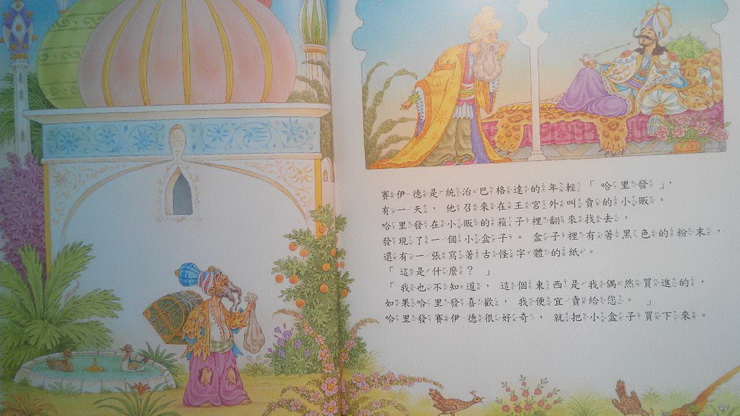 賽伊德是統治巴格達的年輕「哈里發」,
有一天,他召來在王宮外叫賣的小販。
哈里發在小販的箱子裡翻來找去,
發現了一個小盒子。盒子裡有著黑色的粉末,
還有一張寫著古怪字體的紙。
「這是什麼?」
「我也不知道,這個東西是我偶然買進的,
如果哈里發喜歡,我便宜賣給您。」
哈里發賽伊德很好奇,就把小盒子買下來。